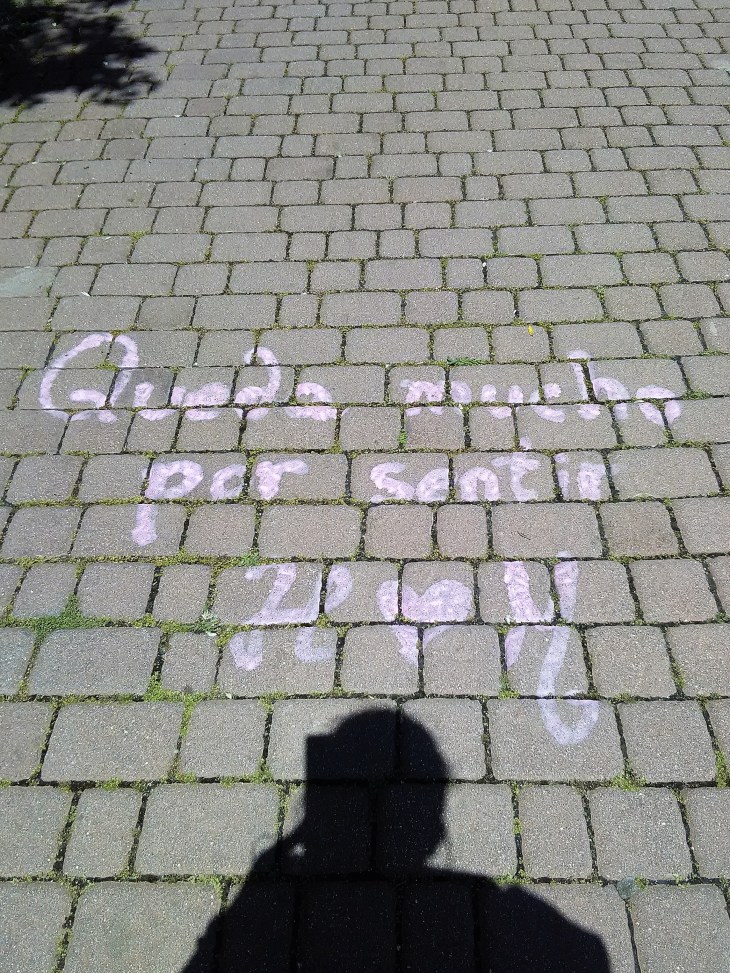 Queda mucho
por sentir
H ♥ Y